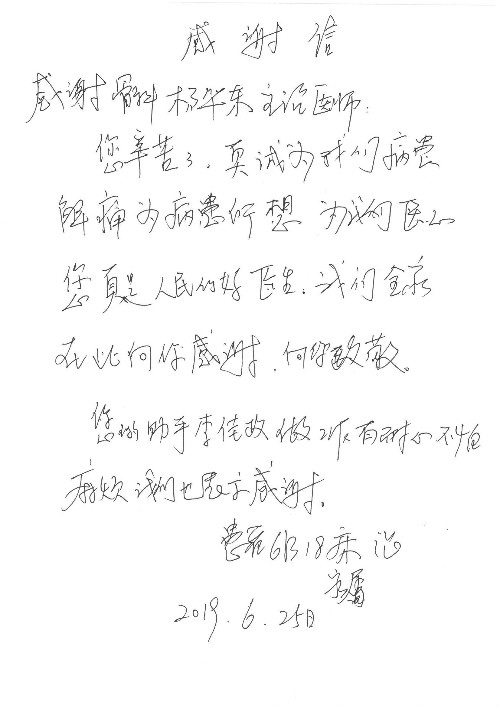 感谢信
感谢骨科杨华东主治医师:
您辛苦了、真诚为我们病患
解痛为病患所想 为我们医心
您真是人民的好医生、我们全家
在此向你感谢、向你致敬。
您的助手李佳 做工作有耐心不怕
麻烦我们也表示感谢。
患者6B18床
家属
2019.6.25日